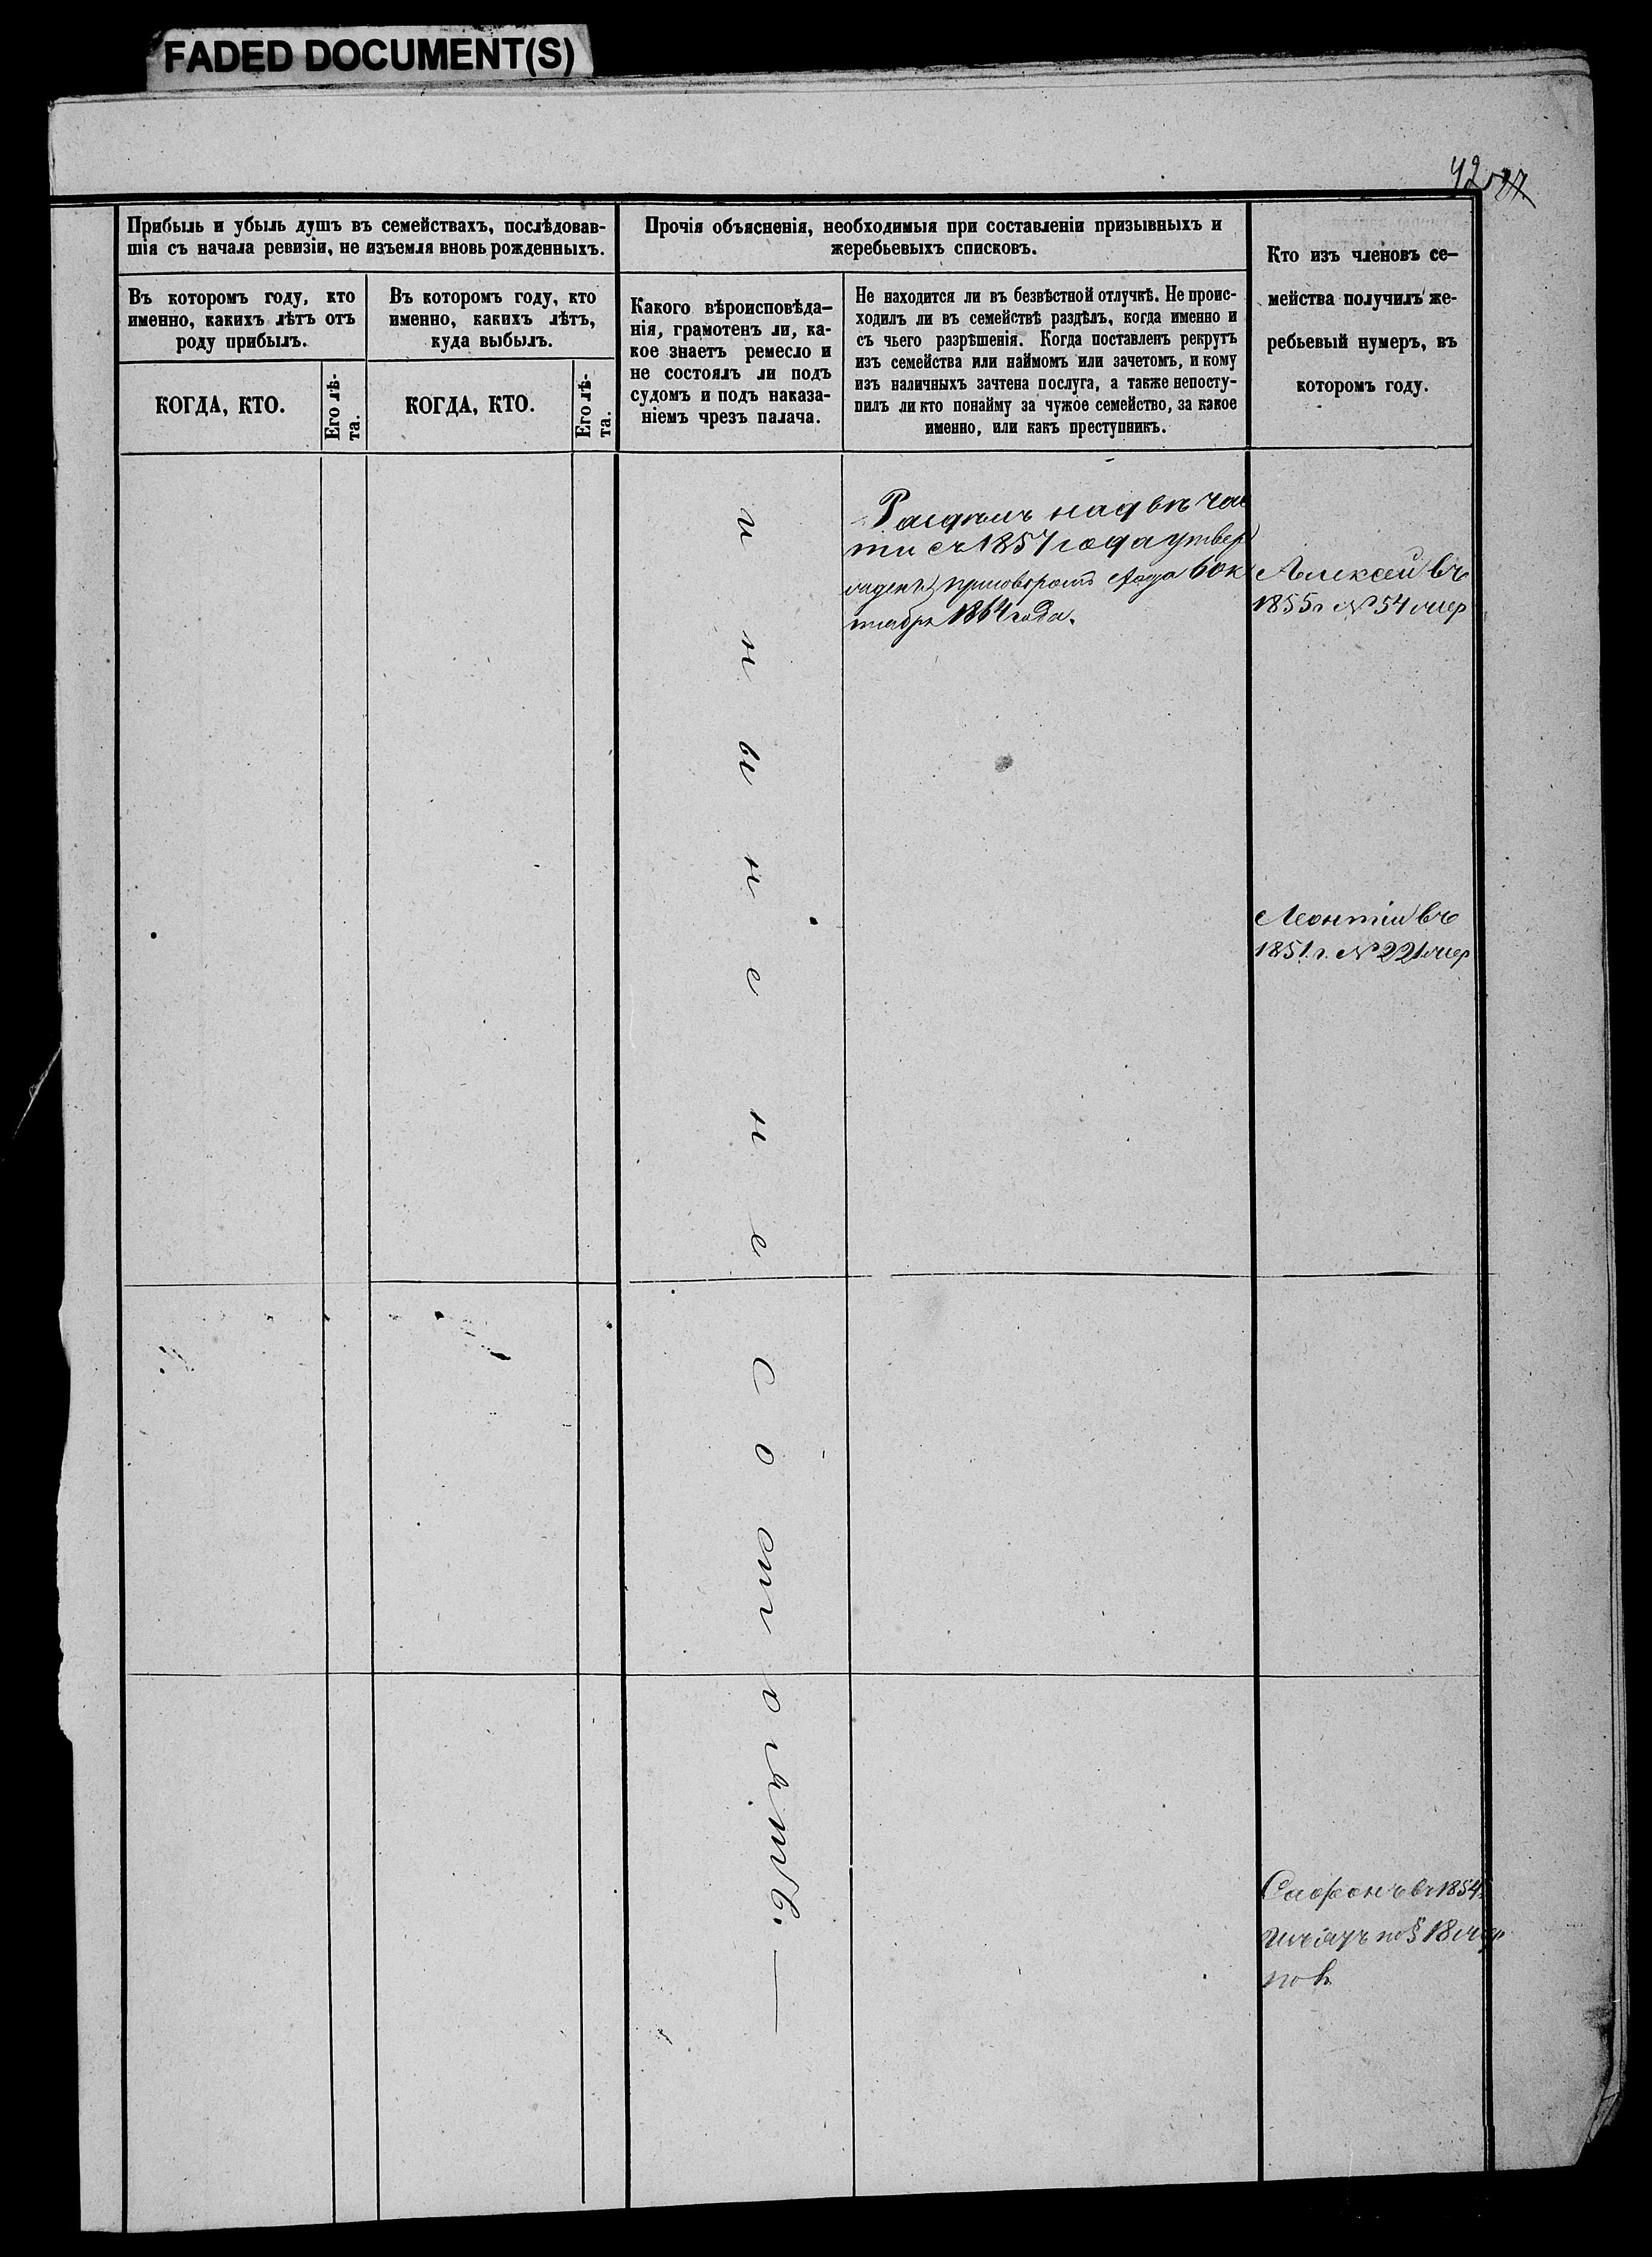 FADED DOCUMENT(S)
42
Прибыль и убыль душъ въ семействахъ, послѣдовав-
шія съ начала ревизіи, не изъемля вновь рожденныхъ.
Въ которомъ году, кто
именно, какихъ лѣтъ отъ
роду прибылъ.
КОГДА, КТО.
Его лѣ-
та.
Въ которомъ году, кто
именно, какихъ лѣтъ,
куда выбылъ.
КОГДА, КТО.
Его лѣ-
та.
Прочія объясненія, необходимыя при составленіи призывныхъ и
жеребьевыхъ списковъ.
Какого вѣроисповѣда-
нія, грамотенъ ли, ка-
кое знаетъ ремесло и
не состоялъ ли подъ
судомъ и подъ наказа-
ніемъ чрезъ палача.
Не находится ли въ безвѣстной отлучкѣ. Не проис-
ходилъ ли въ семействѣ раздѣлъ, когда именно и
съ чьего разрѣшенія. Когда поставленъ рекрутъ
изъ семейства или наймомъ или зачетомъ, и кому
изъ наличныхъ зачтена послуга, а также непосту-
пилъ ли кто понайму за чужое семейство, за какое
именно, или какъ преступникъ.
Кто изъ членовъ се-
мейства получилъ же-
ребьевый нумеръ, въ
которомъ году.
Раздѣлъ на двѣ час
ти съ 1857 года утвер
жденъ приговоромъ схода 6 ок
тября 1864 года.
Алексей въ
1855 г № 54 жер
Леонтій въ
1851 г. № 221 жер
Сафонъ въ 1854
по § 18 жер